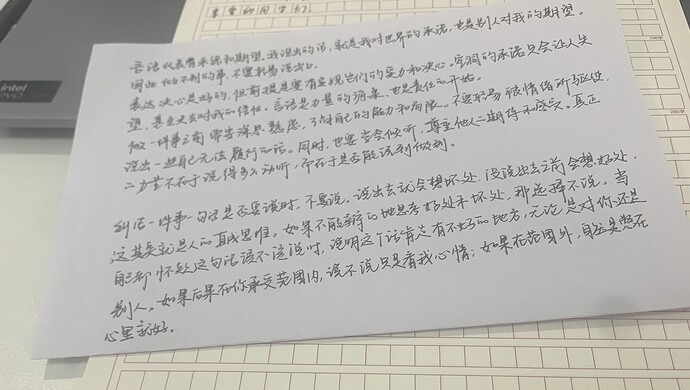 亲爱的同学们
言语代表着承诺和期望。我说出的话，就是我对世界的承诺，也是别人对我的期望。
因此 做不到的事，不要轻易说出口。
表达决心是好的，但前提是要有实现它们的实力和决心。空洞的承诺只会让人失
望，甚至失去对我的信任。言语是力量的源泉，也是责任的开始。
做一件事之前需要深思熟虑，了解自己的能力和局限。不要轻易被情绪所驱使，
说出一些自己无法履行的话。同时，也要学会倾听，尊重他人的期待和感受。真正
的力量不在于说得多么动听，而在于是否能说到做到。
纠结一件事一句话是否要说时，不要说。说出去就会想坏处，没说出去之前会想好处，
这其实就是人的直线思维。如果不能辩证地思考好处和坏处，那选择不说。当
自己都怀疑这句话该不该说时，说明这个话肯定有不好的地方，无论是对你还是
别人。如果后果在你承受范围内，说不说只是看我心情；如果在范围外，自然是憋在
心里就好。
intel
evo
100字
200字